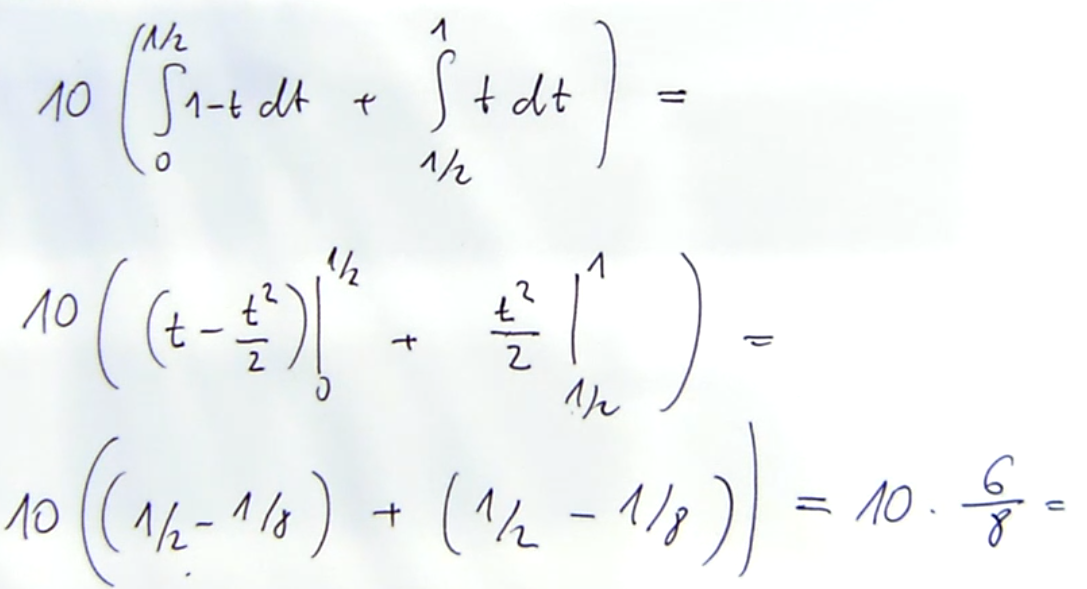 10 ( ∫_0^{1/2} 1-t dt + ∫_{1/2}^1 t dt ) =
10 ( (t - t²/2) |_0^{1/2} + t²/2 |_{1/2}^1 ) =
10 ( (1/2 - 1/8) + (1/2 - 1/8) ) = 10 · 6/8 =